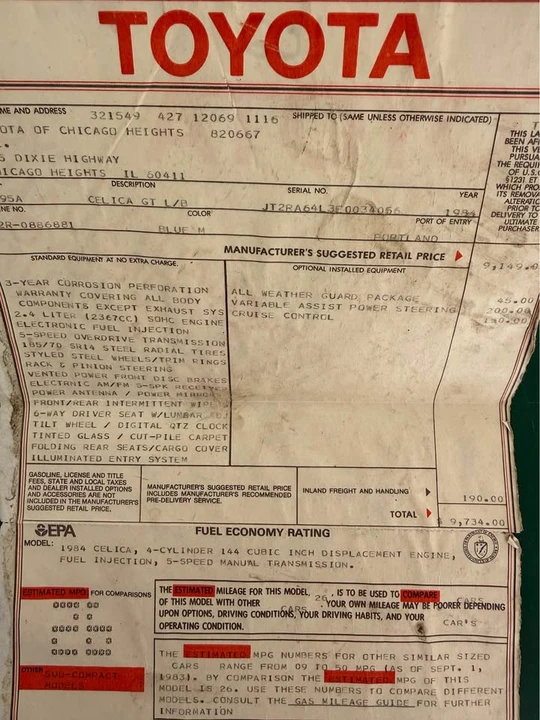 TOYOTA
ME AND ADDRESS 321549 427 12069 1116 SHIPPED TO (SAME UNLESS OTHERWISE INDICATED)
OTA OF CHICAGO HEIGHTS 820667
5 DIXIE HIGHWAY
ICAGO HEIGHTS IL 60411
DESCRIPTION SERIAL NO. YEAR
95A CELICA GT L/B JT2RA64L3E0034056 1984
NE NO. COLOR PORT OF ENTRY
2R-0886881 BLUE M PORTLAND
THIS LA
BEEN AF
THIS VE
PURSUA
THE REQUIR
OF U.S.C
§1231 ET
WHICH PRO
ITS REMOVA
ALTERATIO
PRIOR TO
DELIVERY TO
ULTIMATE
PURCHASER
MANUFACTURER'S SUGGESTED RETAIL PRICE 9,149.0
STANDARD EQUIPMENT AT NO EXTRA CHARGE. OPTIONAL INSTALLED EQUIPMENT
3-YEAR CORROSION PERFORATION
WARRANTY COVERING ALL BODY
COMPONENTS EXCEPT EXHAUST SYS
2.4 LITER (2367CC) SOHC ENGINE
ELECTRONIC FUEL INJECTION
5-SPEED OVERDRIVE TRANSMISSION
185/70 SR14 STEEL RADIAL TIRES
STYLED STEEL WHEELS/TRIM RINGS
RACK & PINION STEERING
VENTED POWER FRONT DISC BRAKES
ELECTRNIC AM/FM 5-SPK RECEIVER
POWER ANTENNA / POWER MIRROR
FRONT/REAR INTERMITTENT WIPERS
6-WAY DRIVER SEAT W/LUMBAR
TILT WHEEL / DIGITAL QTZ CLOCK
TINTED GLASS / CUT-PILE CARPET
FOLDING REAR SEATS/CARGO COVER
ILLUMINATED ENTRY SYSTEM
ALL WEATHER GUARD PACKAGE 45.00
VARIABLE ASSIST POWER STEERING 200.00
CRUISE CONTROL
GASOLINE, LICENSE AND TITLE
FEES, STATE AND LOCAL TAXES
AND DEALER INSTALLED OPTIONS
AND ACCESSORIES ARE NOT
INCLUDED IN THE MANUFACTURER'S
SUGGESTED RETAIL PRICE.
MANUFACTURER'S SUGGESTED RETAIL PRICE
INCLUDES MANUFACTURER'S RECOMMENDED
PRE-DELIVERY SERVICE.
INLAND FREIGHT AND HANDLING 190.00
TOTAL $ 9,734.00
EPA FUEL ECONOMY RATING
MODEL: 1984 CELICA, 4-CYLINDER 144 CUBIC INCH DISPLACEMENT ENGINE,
FUEL INJECTION, 5-SPEED MANUAL TRANSMISSION.
ESTIMATED MPG FOR COMPARISONS
THE ESTIMATED MILEAGE FOR THIS MODEL, 26, IS TO BE USED TO COMPARE CARS
OF THIS MODEL WITH OTHER CARS. YOUR OWN MILEAGE MAY BE POORER DEPENDING
UPON OPTIONS, DRIVING CONDITIONS, YOUR DRIVING HABITS, AND YOUR CAR'S
OPERATING CONDITION.
OTHER
SUB-COMPACT
MODELS
THE ESTIMATED MPG NUMBERS FOR OTHER SIMILAR SIZED
CARS RANGE FROM 09 TO 50 MPG (AS OF SEPT. 1,
1983). BY COMPARISON THE ESTIMATED MPG OF THIS
MODEL IS 26. USE THESE NUMBERS TO COMPARE DIFFERENT
MODELS. CONSULT THE GAS MILEAGE GUIDE FOR FURTHER
INFORMATION